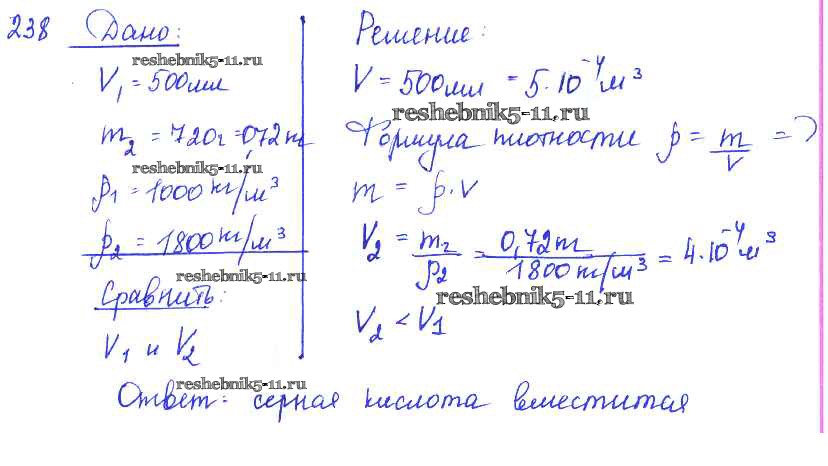 238 Дано:
reshebnik5-11.ru
V₁ = 500мл
m₂ = 720г = 0,72кг
reshebnik5-11.ru
ρ₁ = 1000 кг/м³
ρ₂ = 1800 кг/м³
reshebnik5-11.ru
Сравнить:
V₁ и V₂
Решение:
V = 500мл = 5·10⁻⁴м³
reshebnik5-11.ru
Формула плотности ρ = m/V =>
m = ρ·V
V₂ = m₂/ρ₂ = 0,72кг/1800кг/м³ = 4·10⁻⁴м³
reshebnik5-11.ru
V₂ < V₁
reshebnik5-11.ru
Ответ: серная кислота вместится